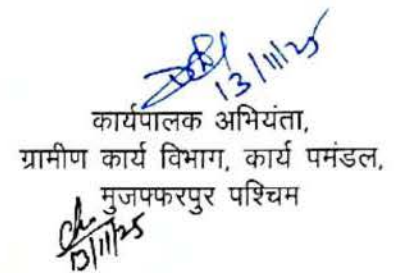 13/11/25
कार्यपालक अभियंता,
ग्रामीण कार्य विभाग, कार्य पमंडल,
मुजफ्फरपुर पश्चिम
13/11/25